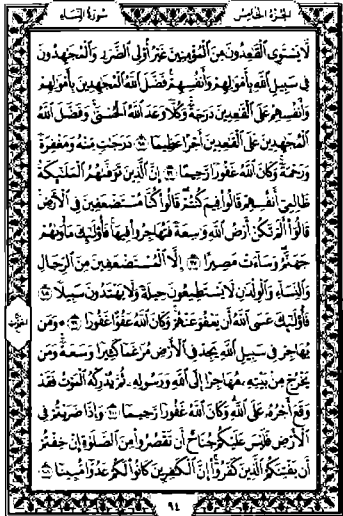 الجزء الخامس
سورة النساء
لَّا يَسْتَوِى الْقَٰعِدُونَ مِنَ الْمُؤْمِنِينَ غَيْرُ أُو۟لِى الضَّرَرِ وَالْمُجَٰهِدُونَ
فِى سَبِيلِ اللَّهِ بِأَمْوَٰلِهِمْ وَأَنفُسِهِمْ فَضَّلَ اللَّهُ الْمُجَٰهِدِينَ بِأَمْوَٰلِهِمْ
وَأَنفُسِهِمْ عَلَى الْقَٰعِدِينَ دَرَجَةً وَكُلًّا وَعَدَ اللَّهُ الْحُسْنَىٰ وَفَضَّلَ اللَّهُ
الْمُجَٰهِدِينَ عَلَى الْقَٰعِدِينَ أَجْرًا عَظِيمًا ۝٩٥ دَرَجَٰتٍ مِّنْهُ وَمَغْفِرَةً
وَرَحْمَةً وَكَانَ اللَّهُ غَفُورًا رَّحِيمًا ۝٩٦ إِنَّ الَّذِينَ تَوَفَّىٰهُمُ الْمَلَٰٓئِكَةُ
ظَالِمِىٓ أَنفُسِهِمْ قَالُوا۟ فِيمَ كُنتُمْ قَالُوا۟ كُنَّا مُسْتَضْعَفِينَ فِى الْأَرْضِ
قَالُوٓا۟ أَلَمْ تَكُنْ أَرْضُ اللَّهِ وَٰسِعَةً فَتُهَاجِرُوا۟ فِيهَا فَأُو۟لَٰٓئِكَ مَأْوَىٰهُمْ
جَهَنَّمُ وَسَآءَتْ مَصِيرًا ۝٩٧ إِلَّا الْمُسْتَضْعَفِينَ مِنَ الرِّجَالِ
وَالنِّسَآءِ وَالْوِلْدَٰنِ لَا يَسْتَطِيعُونَ حِيلَةً وَلَا يَهْتَدُونَ سَبِيلًا ۝٩٨
فَأُو۟لَٰٓئِكَ عَسَى اللَّهُ أَن يَعْفُوَ عَنْهُمْ وَكَانَ اللَّهُ عَفُوًّا غَفُورًا ۝٩٩ ۞ وَمَن
يُهَاجِرْ فِى سَبِيلِ اللَّهِ يَجِدْ فِى الْأَرْضِ مُرَٰغَمًا كَثِيرًا وَسَعَةً وَمَن
يَخْرُجْ مِنۢ بَيْتِهِۦ مُهَاجِرًا إِلَى اللَّهِ وَرَسُولِهِۦ ثُمَّ يُدْرِكْهُ الْمَوْتُ فَقَدْ
وَقَعَ أَجْرُهُۥ عَلَى اللَّهِ وَكَانَ اللَّهُ غَفُورًا رَّحِيمًا ۝١٠٠ وَإِذَا ضَرَبْتُمْ فِى
الْأَرْضِ فَلَيْسَ عَلَيْكُمْ جُنَاحٌ أَن تَقْصُرُوا۟ مِنَ الصَّلَوٰةِ إِنْ خِفْتُمْ
أَن يَفْتِنَكُمُ الَّذِينَ كَفَرُوٓا۟ إِنَّ الْكَٰفِرِينَ كَانُوا۟ لَكُمْ عَدُوًّا مُّبِينًا ۝١٠١
٩٤